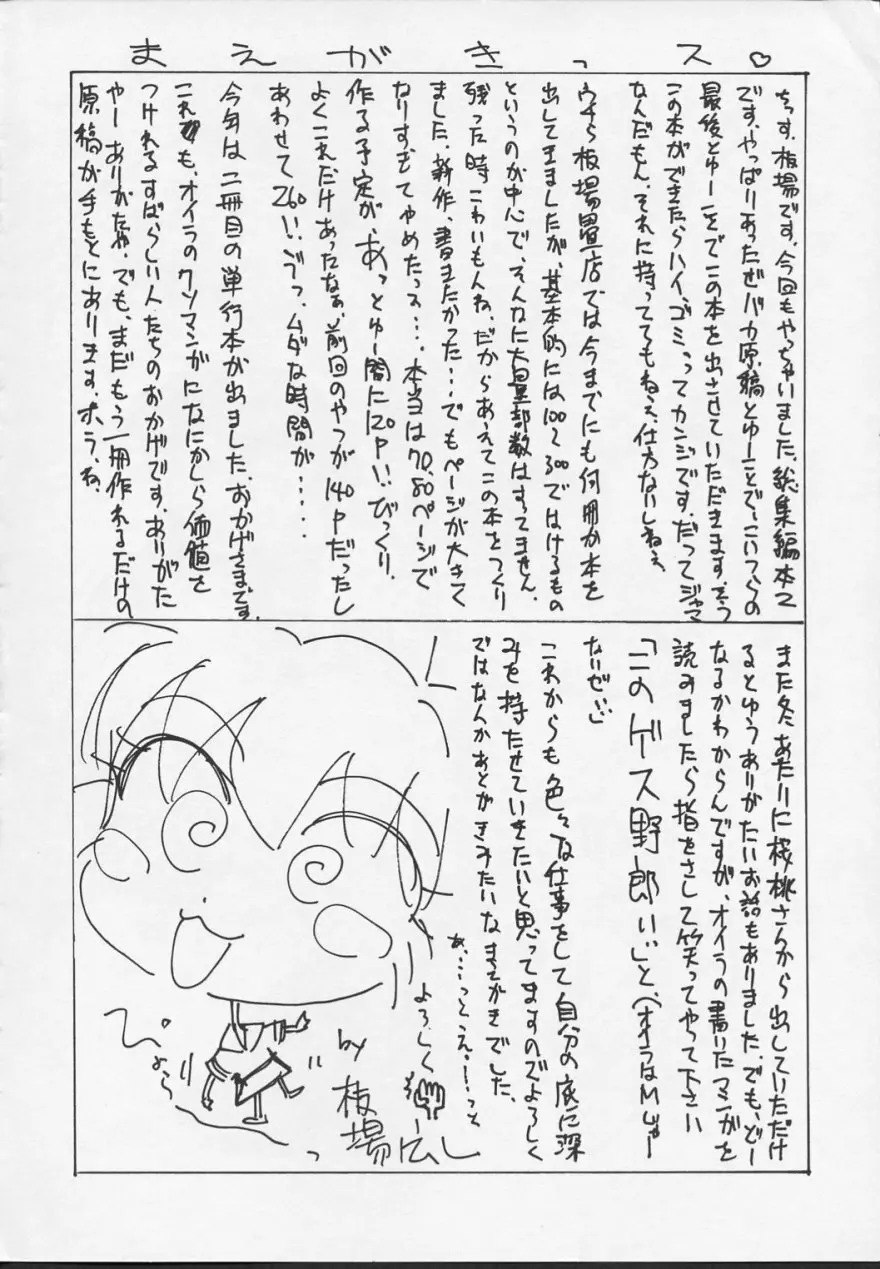 まえがきっス♡
ちっす、板場です。今回もやっちゃいました、総集編本て
です。やっぱりあったぜバカ原稿とゆーことで、こいつらの
最後とゆーことでこの本を出させていただきます。もう
この本ができたらハイ、ゴミってカンジです。だってジャマ
なんだもん、それに持っててもねえ、仕方ないしねえ。
うちら板場畳店では今までにも何冊か本を
出してきましたが、基本的には100〜300ではけるもの
というのが中心で、そんなに大量部数はすってません。
残った時こわいもんね。だからあえてこの本をつくり
ました。新作、書きたかった…でもページが大きく
なりすぎてやめたっス…。本当は70,80ページで
作る予定が、あっとゆー間に120P!!びっくり。
よくこれだけあったなあ、前回のやつが140Pだったし
あわせて260!!ゲゲっ、ムダな時間が・・・・・
今年は二冊目の単行本が出ました。おかげさまです。
これも、オイラのクソマンガになにかしら価値を
つけれるすばらしい人たちのおかげです。ありがた
やーありがたや。でも、まだもう一冊作れるだけの
原稿が手もとにあります。ホラ、ね。
また冬あたりに桜桃さんから出していただけ
るとゆうありがたいお話もありました。でも、どー
なるかわからんですが、オイラの書いたマンガを
読みましたら指をさして笑ってやって下さい
「このゲス野郎!!」と(オイラはMじゃー
ないぜ!!)
これからも色々な仕事をして自分の底に深
みを持たせていきたいと思ってますのでよろしく
ではなんかあとがきみたいなまえがきでした。
あ、…っとえー!っと
よろしく
by 板場広し
っ